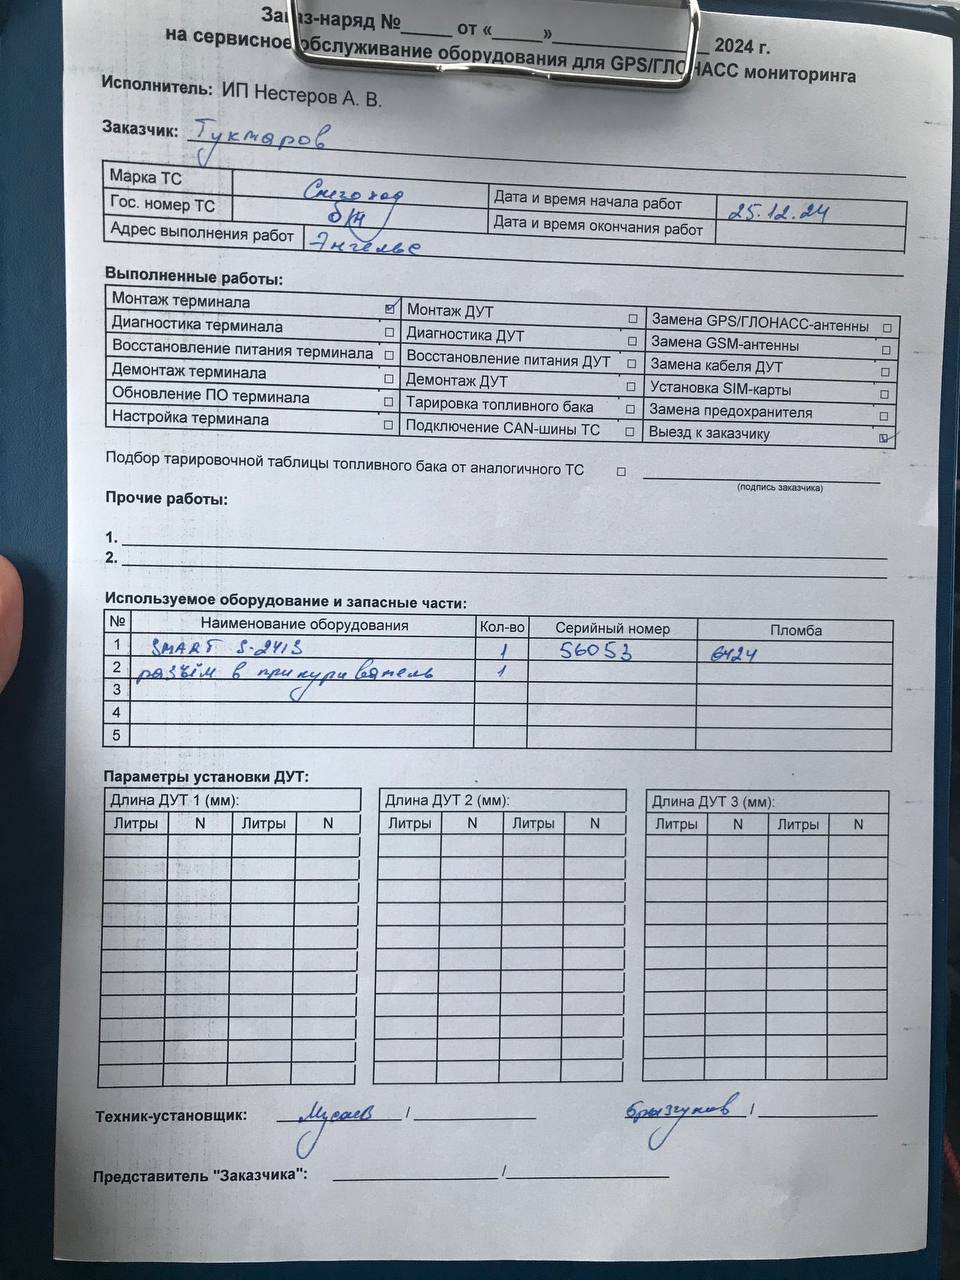 Заказ-наряд №_____ от «_____»_______________ 2024 г.
на сервисное обслуживание оборудования для GPS/ГЛОНАСС мониторинга
Исполнитель: ИП Нестеров А. В.
Заказчик: Тукмаров
Марка ТС Снегоход Дата и время начала работ 25.12.24
Гос. номер ТС б/н Дата и время окончания работ
Адрес выполнения работ Энгельс
Выполненные работы:
Монтаж терминала ☑ Монтаж ДУТ ☐ Замена GPS/ГЛОНАСС-антенны ☐
Диагностика терминала ☐ Диагностика ДУТ ☐ Замена GSM-антенны ☐
Восстановление питания терминала ☐ Восстановление питания ДУТ ☐ Замена кабеля ДУТ ☐
Демонтаж терминала ☐ Демонтаж ДУТ ☐ Установка SIM-карты ☐
Обновление ПО терминала ☐ Тарировка топливного бака ☐ Замена предохранителя ☐
Настройка терминала ☐ Подключение CAN-шины ТС ☐ Выезд к заказчику ☑
Подбор тарировочной таблицы топливного бака от аналогичного ТС ☐
(подпись заказчика)
Прочие работы:
1.
2.
Используемое оборудование и запасные части:
№ Наименование оборудования Кол-во Серийный номер Пломба
1 SMART S-2413 1 56053 6424
2 разъём в прикуриватель 1
3
4
5
Параметры установки ДУТ:
Длина ДУТ 1 (мм): Длина ДУТ 2 (мм): Длина ДУТ 3 (мм):
Литры N Литры N Литры N Литры N Литры N Литры N
Техник-установщик: Мусаев / Брызгунов /
Представитель "Заказчика": /